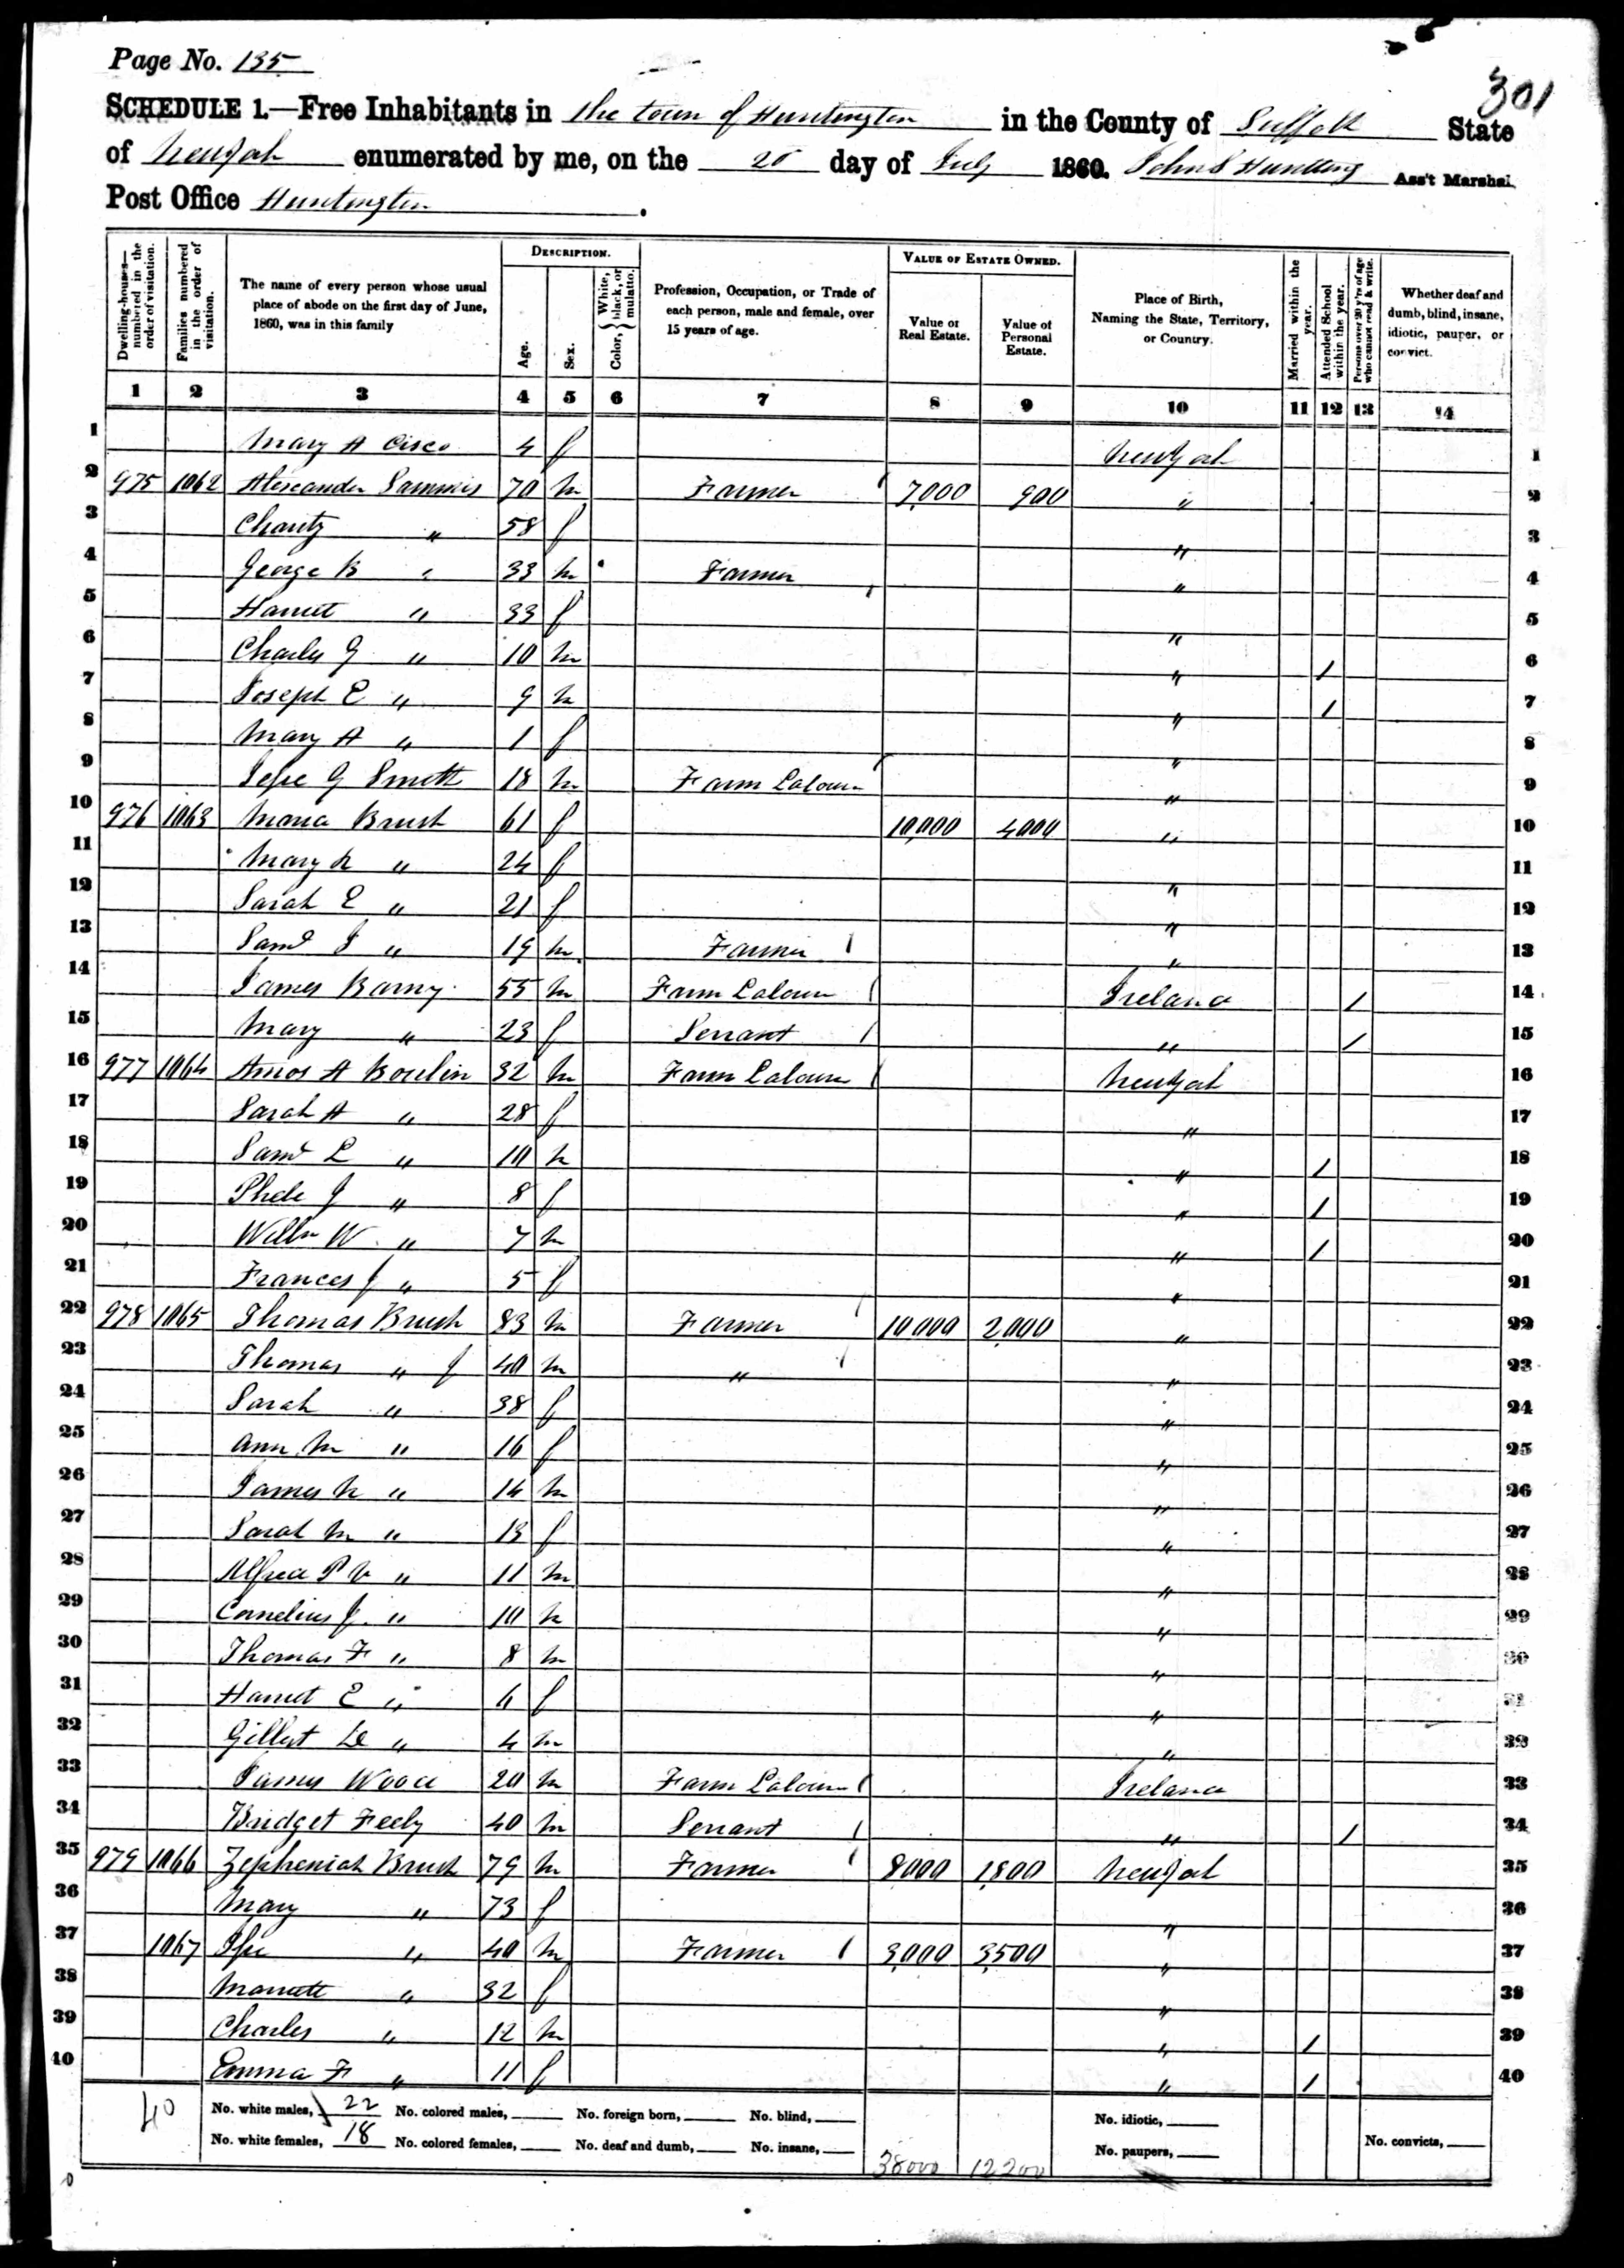 Page No. 135
301
SCHEDULE 1.—Free Inhabitants in the town of Huntington in the County of Suffolk State
of New York enumerated by me, on the 20 day of July 1860. John S Huntting Ass't Marshal
Post Office Huntington.
Dwelling-houses—numbered in the order of visitation. Families numbered in the order of visitation. The name of every person whose usual place of abode on the first day of June, 1860, was in this family DESCRIPTION. Age. Sex. Color, {White, black, or mulatto. Profession, Occupation, or Trade of each person, male and female, over 15 years of age. VALUE OF ESTATE OWNED. Value of Real Estate. Value of Personal Estate. Place of Birth, Naming the State, Territory, or Country. Married within the year. Attended School within the year. Persons over 20 y'rs of age who cannot read & write. Whether deaf and dumb, blind, insane, idiotic, pauper, or convict.
1 2 3 4 5 6 7 8 9 10 11 12 13 14
1 Mary A Cisco 4 f New York 1
2 975 1062 Alexander Sammis 70 m Farmer 7,000 900 " 2
3 Charity " 58 f " 3
4 George B " 33 m Farmer " 4
5 Harriet " 33 f " 5
6 Charles G " 10 m " / 6
7 Joseph E " 9 m " / 7
8 Mary A " 1 f " 8
9 Jesse G Smith 18 m Farm Labour " 9
10 976 1063 Maria Brush 61 f 10,000 4000 " 10
11 Mary " 24 f " 11
12 Sarah E " 21 f " 12
13 Saml J " 19 m Farmer " 13
14 James Barny 55 m Farm Labour Ireland / 14
15 Mary " 23 f Servant " / 15
16 977 1064 Amos A 32 m Farm Labour New York 16
17 Sarah A " 28 f " 17
18 Saml L " 10 m " / 18
19 Phebe J " 8 f " / 19
20 Willm W " 7 m " / 20
21 Frances J " 5 f " 21
22 978 1065 Thomas Brush 83 m Farmer 10000 2,000 " 22
23 Thomas " J 40 m " " 23
24 Sarah " 38 f " 24
25 Ann M " 16 f " 25
26 James " 14 m " 26
27 Sarah M " 13 f " 27
28 Alfred P " 11 m " 28
29 Cornelius J. " 10 m " 29
30 Thomas F " 8 m " 30
31 Harriet E " 6 f " 31
32 Gilbert " 4 m " 32
33 James Wood 20 m Farm Labour Ireland 33
34 Bridget Feely 40 m Servant " / 34
35 979 1066 Zepheniah Brush 79 m Farmer 8000 1,800 New York 35
36 Mary " 73 f " 36
37 1067 " 40 m Farmer 3,000 3,500 " 37
38 " 32 f " 38
39 Charles " 12 m " / 39
40 Emma F " 11 f " / 40
40 No. white males, 22 No. colored males, No. foreign born, No. blind, No. idiotic,
No. white females, 18 No. colored females, No. deaf and dumb, No. insane, 38000 12200 No. paupers, No. convicts,